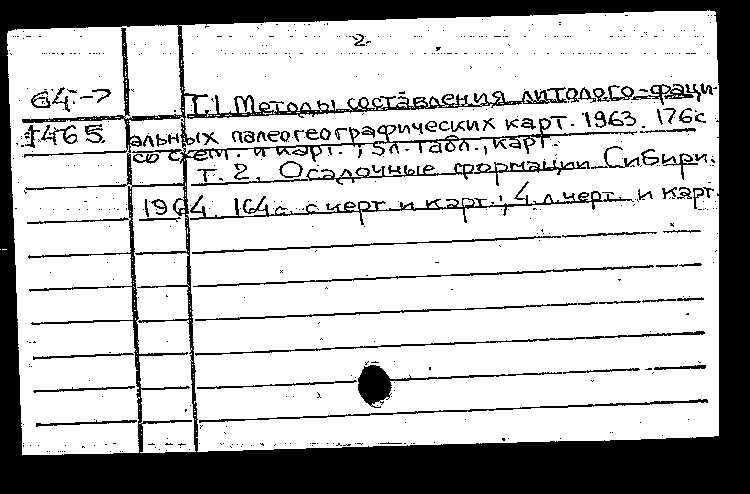 2
64-7
Т.1. Методы составления литолого-фаци-
1465
альных палеогеографических карт. 1963. 176с
со схем. и карт.; 5л. табл., карт.
Т. 2. Осадочные формации Сибири.
1964. 164с. с черт. и карт.; 4 л. черт. и карт.